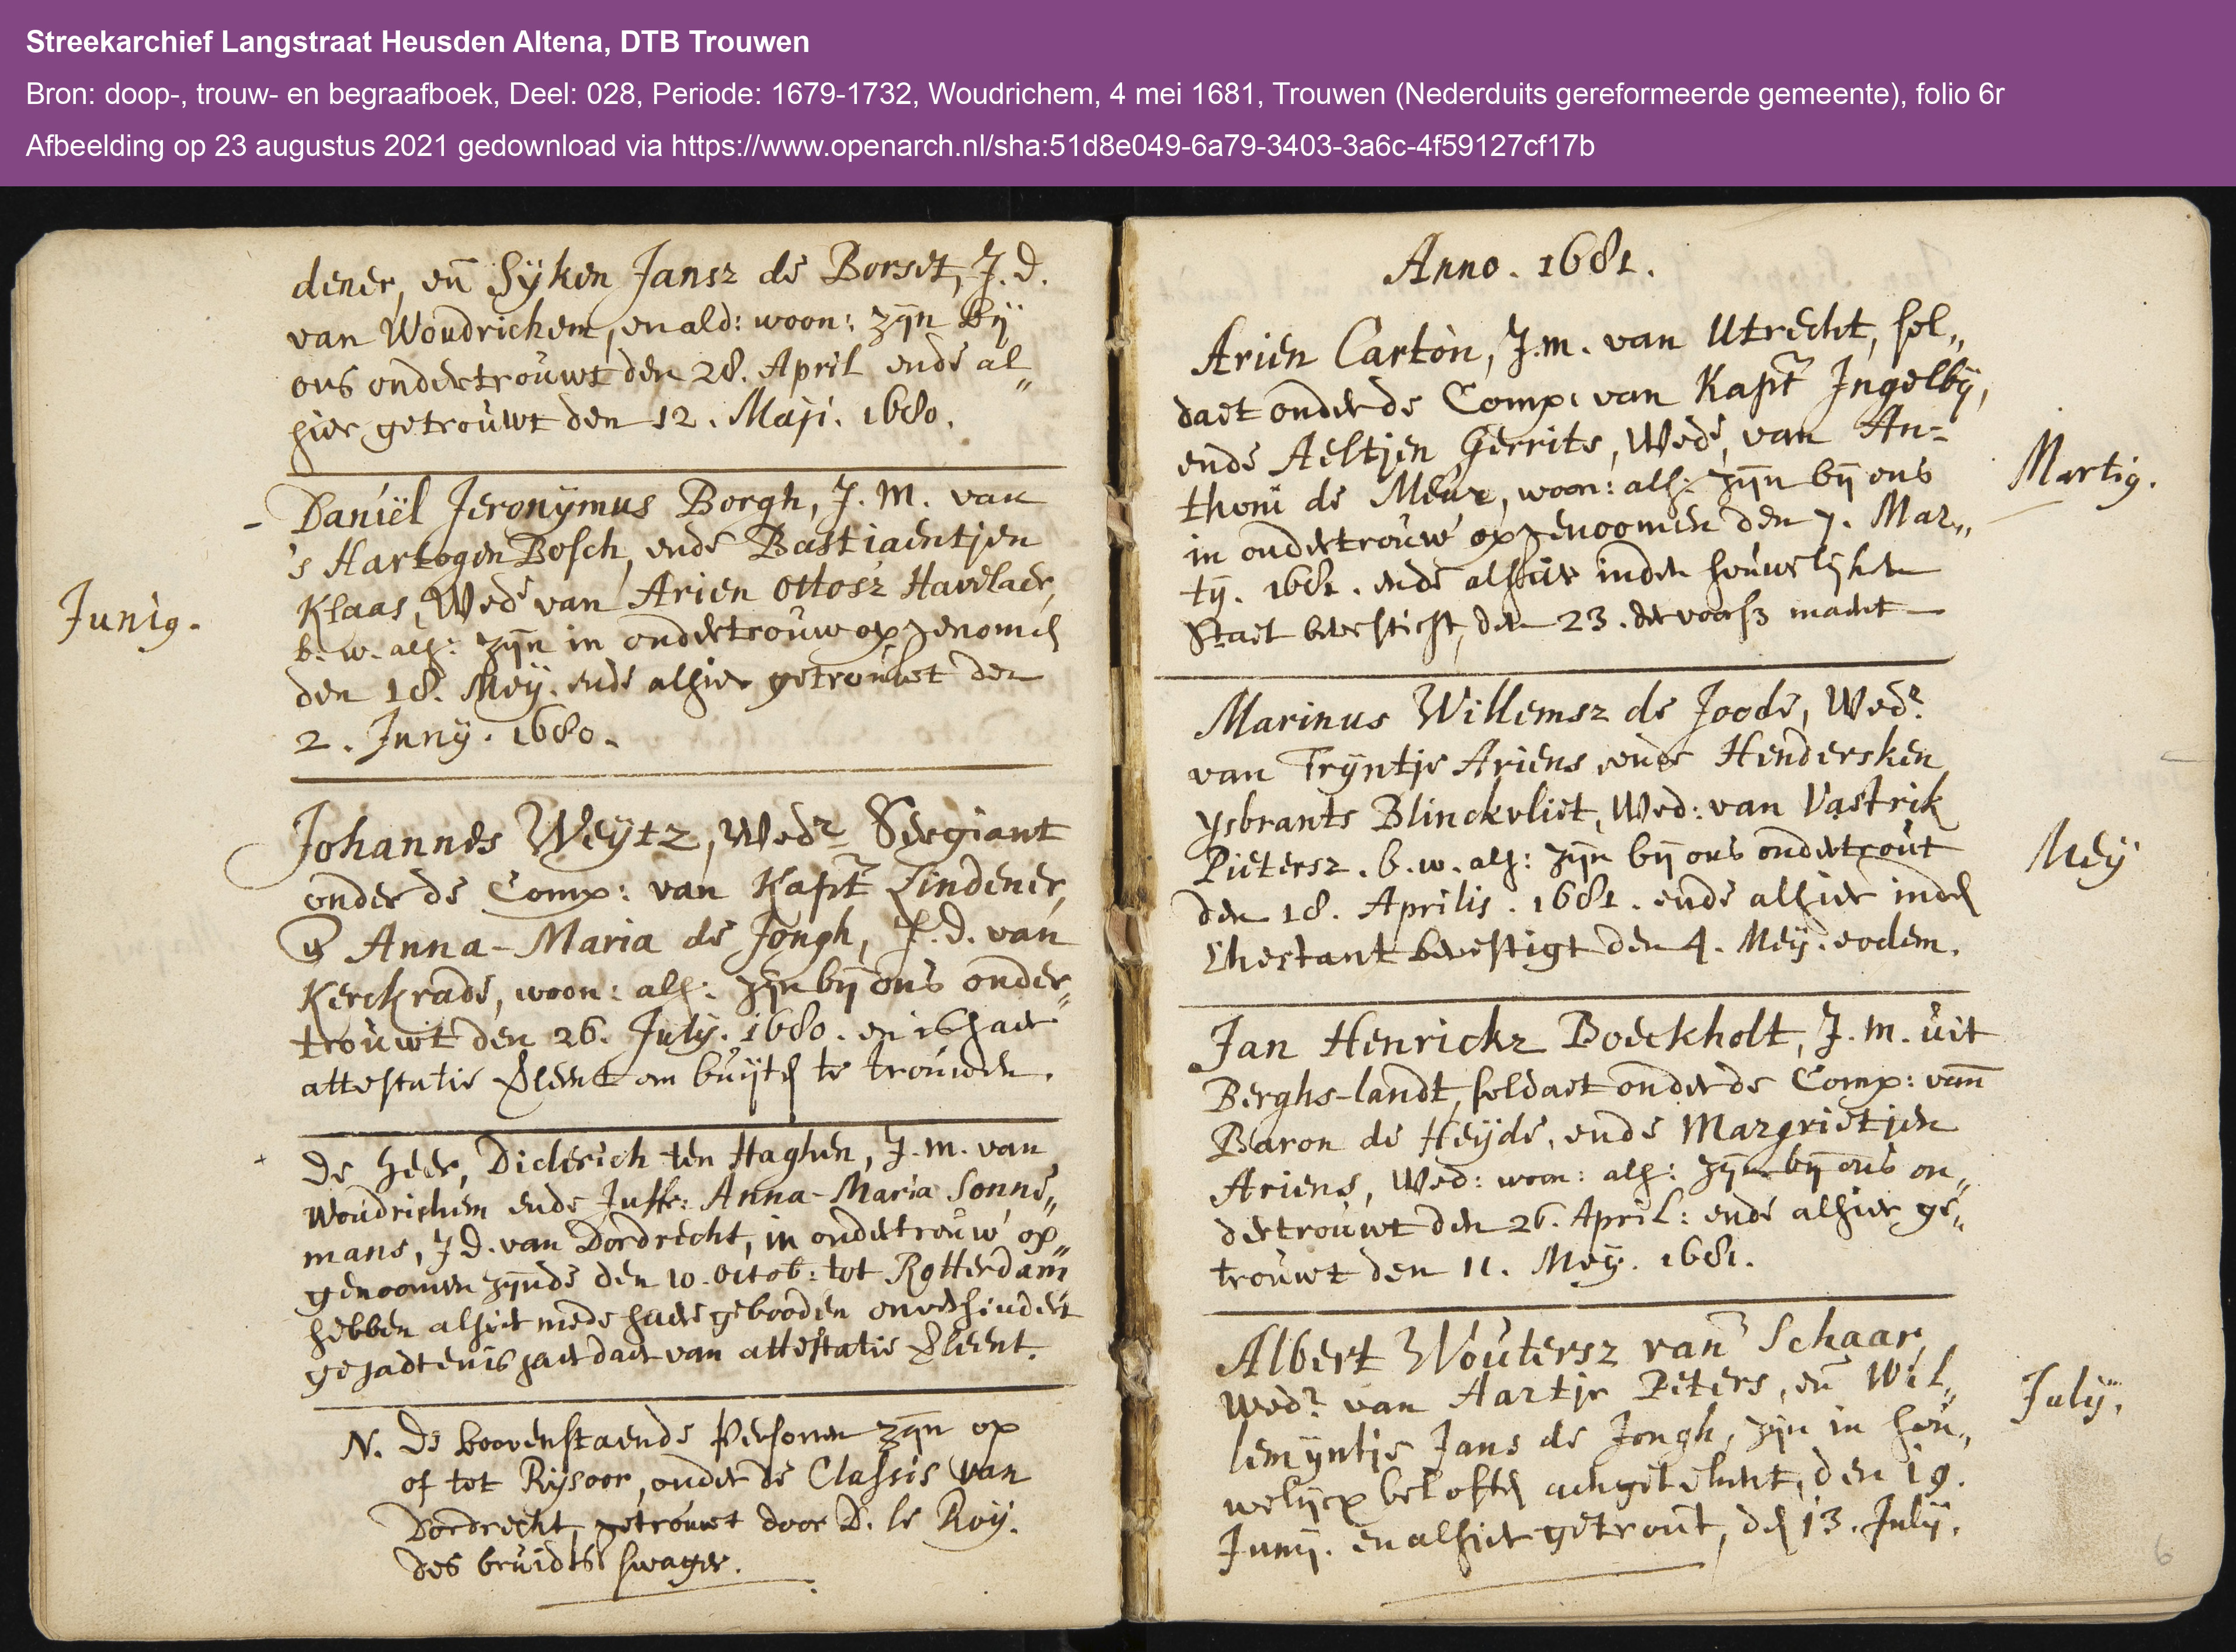 Streekarchief Langstraat Heusden Altena, DTB Trouwen
Bron: doop-, trouw- en begraafboek, Deel: 028, Periode: 1679-1732, Woudrichem, 4 mei 1681, Trouwen (Nederduits gereformeerde gemeente), folio 6r
Afbeelding op 23 augustus 2021 gedownload via https://www.openarch.nl/sha:51d8e049-6a79-3403-3a6c-4f59127cf17b
dener, en̄ Sÿken Jansz de Borset, J. d.
van Woudrichem, en ald: woon: zijn Bij
ons ondertrouwt den 28. April ende al„
hier getrouwt den 12. Maji. 1680.
Daniël Jeronÿmus Borgh, J. M. van
's HartogenBosch, ende Bastiaentjen
Junig.
Klaas, Wede van Arien ottosz Havelaer,
b. w. alh: zijn in ondertrouw opgenomen
den 18. Meÿ. ende alhier getrouwt den
2. Junÿ. 1680.
Johannes Weÿtz, Wedr Sergiant
onder de Comp: van Kapt Lindener,
Anna-Maria de Jongh, J. d. van
Kerckrade, woon: alh: zijn bij ons onder„
trouwt den 26. Julÿ. 1680. en is haer
attestatie verleent om buijten te trouwen.
De heer, Diderich ten Haghen, J. m. van
Woudrichem ende Juffr: Anna-Maria Sonne„
mans, J d. van Dordrecht, in ondertrouw op„
genoomen zijnde den 10. Octob: tot Rotterdam
hebben alhier mede haere gebooden onverhindert
gehadt en is haer daer van attestatie verleent.
N. De boovenstaende Personen zijn op
of tot Rijsoor, onder de Classis van
Dordrecht, getrouwt door D. le Roij.
des bruidts swager.
Anno. 1681.
Arien Carton, J. m. van Utrecht, sol„
daet onder de Comp: van Kapt Ingelbÿ,
ende Aeltjen Gerrits, Wede, van An-
Martig.
thoni de Meur, woon: alh: zijn bij ons
in ondertrouw opgenoomen den 7. Mar„
tij. 1681. ende alhier inden houwelijken
Staet bevesticht, den 23. der voors maent
Marinus Willemsz de Joode, Wedr.
van Trijntje Ariens, ende Hendersken
Ysbrants Blinckvliet, Wed: van Vastrik
Meÿ
Pietersz. b. w. alh: zijn bij ons ondertrout
den 18. Aprilis. 1681. ende alhier inden
Ehestant bevestigt den 4. Meÿ. eodem.
Jan Henrickz Boeckholt, J. m. uit
Berghs-landt, soldaet onder de Comp: van
Baron de Heÿde, ende Margrietjen
Ariens, Wed: woon: alh: zijn bij ons on„
dertrouwt den 26. April: ende alhier ge„
trouwt den 11. Meÿ. 1681.
Albert Woutersz van Schaar,
Wedr. van Aartje Peters, en̄ Wil„
Julÿ.
lemÿntje Jans de Jongh, zijn in hou„
welijcx beloften aengetekent, den 19.
Junij. en alhier getrout, den 13. Julÿ.
6